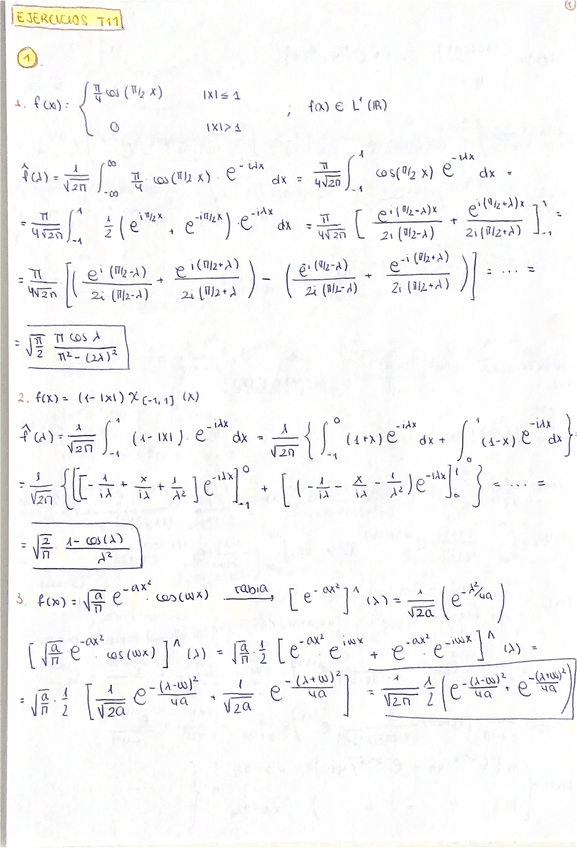 ①
EJERCICIOS T11
①.
1. f(x) = { π/4 cos(π/2 x) |x| ≤ 1 ; f(x) ∈ L¹(ℝ)
0 |x| > 1
f̂(λ) = 1/√2π ∫_{-∞}^{∞} π/4 · cos(π/2 x) · e^{-iλx} dx = π/4√2π ∫_{-1}^{1} cos(π/2 x) e^{-iλx} dx =
= π/4√2π ∫_{-1}^{1} 1/2 (e^{iπ/2x} + e^{-iπ/2x}) · e^{-iλx} dx = π/4√2π [ e^{i(π/2-λ)x}/2i(π/2-λ) + e^{i(π/2+λ)x}/2i(π/2+λ) ]_{-1}^{1} =
= π/4√2π [ ( e^{i(π/2-λ)}/2i(π/2-λ) + e^{i(π/2+λ)}/2i(π/2+λ ) - ( e^{-i(π/2-λ)}/2i(π/2-λ) + e^{-i(π/2+λ)}/2i(π/2+λ) ) ] = ... =
= √π/2 π cos λ/π²-(2λ)²
2. f(x) = (1-|x|) χ_{[-1,1]} (x)
f̂(λ) = 1/√2π ∫_{-1}^{1} (1-|x|) · e^{-iλx} dx = 1/√2π { ∫_{-1}^{0} (1+x) e^{-iλx} dx + ∫_{0}^{1} (1-x) e^{-iλx} dx } =
= 1/√2π { [ [ -1/iλ + x/iλ + 1/λ² ] e^{-iλx} ]_{-1}^{0} + [ (-1/iλ - x/iλ - 1/λ²) e^{-iλx} ]_{0}^{1} } = ... =
= √2/π 1-cos(λ)/λ²
3. f(x) = √a/π e^{-ax²} · cos(ωx) tabla → [ e^{-ax²} ]^ (λ) = 1/√2a (e^{-λ²/4a})
[ √a/π e^{-ax²} · cos(ωx) ]^ (λ) = √a/π · 1/2 [ e^{-ax²} · e^{iωx} + e^{-ax²} · e^{-iωx} ]^ (λ) =
= √a/π · 1/2 [ 1/√2a e^{-(λ-ω)²/4a} + 1/√2a · e^{-(λ+ω)²/4a} ] = 1/√2π 1/2 ( e^{-(λ-ω)²/4a} + e^{-(λ+ω)²/4a} )